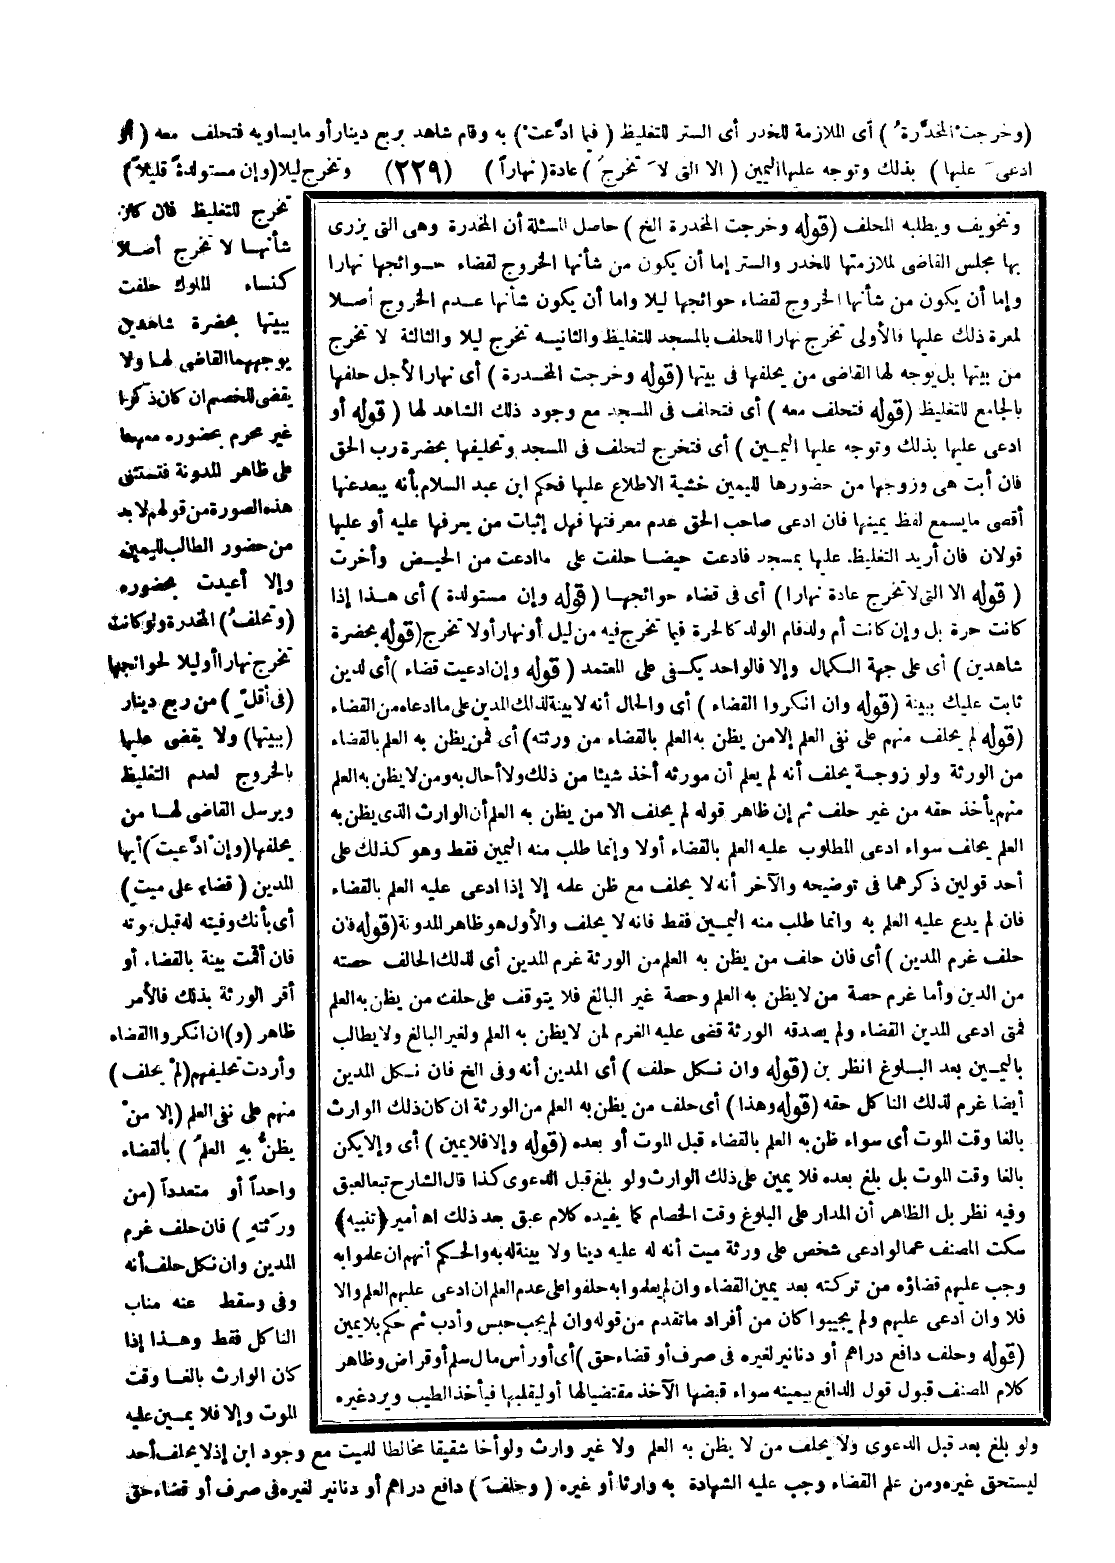 (وخرجت المخدرة) أى الملازمة للخدر أى الستر للتغليظ (فيما ادعت) به وقام شاهد بربع دينار أو ما يساويه فتحلف معه (أو
ادعى عليها) بذلك وتوجه عليها اليمين (الا التى لا تخرج) عادة (نهاراً) (٢٢٩) وتخرج ليلا (وإن مستولدة قليلاً)
تخرج للتغليظ فان كان
شأنها لا تخرج أصلا
كنساء الملوك حلفت
ببيتها بحضرة شاهدين
يوجههما القاضى لها ولا
يقضى للخصم ان كان ذكرا
غير محرم بحضوره معهما
على ظاهر المدونة فتستثنى
هذه الصورة من قولهم لابد
من حضور الطالب لليمين
وإلا أعيدت بحضوره
(وتحلف) المخدرة ولو كانت
تخرج نهارا أو ليلا لحوائجها
(فى أقل) من ربع دينار
(ببيتها) ولا يقضى عليها
بالخروج لعدم التغليظ
ويرسل القاضى لها من
يحلفها (وإن ادعيت) أيها
المدين (قضاء على ميت)
أى بأنك وفيته له قبل موته
فان أقمت بينة بالقضاء أو
أقر الورثة بذلك فالأمر
ظاهر (و) ان انكروا القضاء
وأردت تحليفهم (لم يحلف)
منهم على نفى العلم (إلا من
يظن به العلم) بالقضاء
واحداً أو متعدداً (من
ورثته) فان حلف غرم
المدين وان نكل حلف أنه
وفى وسقط عنه مناب
الناكل فقط وهذا إذا
كان الوارث بالغا وقت
الموت وإلا فلا يمين عليه
وتخويف ويطلبه المحلف (قوله وخرجت المخدرة الخ) حاصل المسئلة أن المخدرة وهى التى يزرى
بها مجلس القاضى لملازمتها للخدر والستر إما أن يكون من شأنها الخروج لقضاء حوائجها نهارا
وإما أن يكون من شأنها الخروج لقضاء حوائجها ليلا واما أن يكون شأنها عدم الخروج أصلا
لمعرة ذلك عليها فالأولى تخرج نهارا للحلف بالمسجد للتغليظ والثانيه تخرج ليلا والثالثة لا تخرج
من بيتها بل يوجه لها القاضى من يحلفها فى بيتها (قوله وخرجت المخدرة) أى نهارا لأجل حلفها
بالجامع للتغليظ (قوله فتحلف معه) أى فتحلف فى المسجد مع وجود ذلك الشاهد لها (قوله أو
ادعى عليها بذلك وتوجه عليها اليمين) أى فتخرج لتحلف فى المسجد وتحليفها بحضرة رب الحق
فان أبت هى وزوجها من حضورها لليمين خشية الاطلاع عليها فحكم ابن عبد السلام بأنه يبعد عنها
أقصى ما يسمع لفظ يمينها فان ادعى صاحب الحق عدم معرفتها فهل إثبات من يعرفها عليه أو عليها
قولان فان أريد التغليظ عليها بمسجد فادعت حيضا حلفت على ما ادعت من الحيض وأخرت
(قوله الا التى لا تخرج عادة نهارا) أى فى قضاء حوائجها (قوله وإن مستولدة) أى هذا إذا
كانت حرة بل وإن كانت أم ولد فام الولد كالحرة فيما تخرج فيه من ليل أو نهار أو لا تخرج (قوله بحضرة
شاهدين) أى على جهة الكمال وإلا فالواحد يكفى على المعتمد (قوله وإن ادعيت قضاء) أى لدين
ثابت عليك ببينة (قوله وان انكروا القضاء) أى والحال أنه لا بينة لذلك المدين على ما ادعاه من القضاء
(قوله لم يحلف منهم على نفى العلم إلا من يظن به العلم بالقضاء من ورثته) أى فمن يظن به العلم بالقضاء
من الورثة ولو زوجة يحلف أنه لم يعلم أن مورثه أخذ شيئا من ذلك ولا أحال به ومن لا يظن به العلم
منهم يأخذ حقه من غير حلف ثم إن ظاهر قوله لم يحلف الا من يظن به العلم أن الوارث الذى يظن به
العلم يحلف سواء ادعى المطلوب عليه العلم بالقضاء أولا وإنما طلب منه اليمين فقط وهو كذلك على
أحد قولين ذكرهما فى توضيحه والآخر أنه لا يحلف مع ظن علمه إلا إذا ادعى عليه العلم بالقضاء
فان لم يدع عليه العلم به وانما طلب منه اليمين فقط فانه لا يحلف والأول هو ظاهر المدونة (قوله فان
حلف غرم المدين) أى فان حلف من يظن به العلم من الورثة غرم المدين أى لذلك الحالف حصته
من الدين وأما غرم حصة من لا يظن به العلم وحصة غير البالغ فلا يتوقف على حلف من يظن به العلم
فمتى ادعى المدين القضاء ولم يصدقه الورثة قضى عليه الغرم لمن لا يظن به العلم ولغير البالغ ولا يطالب
باليمين بعد البلوغ انظر بن (قوله وان نكل حلف) أى المدين أنه وفى الخ فان نكل المدين
أيضا غرم لذلك الناكل حقه (قوله وهذا) أى حلف من يظن به العلم من الورثة ان كان ذلك الوارث
بالغا وقت الموت أى سواء ظن به العلم بالقضاء قبل الموت أو بعده (قوله وإلا فلا يمين) أى وإلا يكن
بالغا وقت الموت بل بلغ بعده فلا يمين على ذلك الوارث ولو بلغ قبل الدعوى كذا قال الشارح تبعا لعبق
وفيه نظر بل الظاهر أن المدار على البلوغ وقت الخصام كما يفيده كلام عبق بعد ذلك اه أمير (تنبيه)
سكت المصنف عما لو ادعى شخص على ورثة ميت أنه له عليه دينا ولا بينة له به والحكم أنهم ان علموا به
وجب عليهم قضاؤه من تركته بعد يمين القضاء وان لم يعلموا به حلفوا على عدم العلم ان ادعى عليهم العلم والا
فلا وان ادعى عليهم ولم يجيبوا كان من أفراد ما تقدم من قوله وان لم يجب حبس وأدب ثم حكم بلا يمين
(قوله وحلف دافع دراهم أو دنانير لغيره فى صرف أو قضاء حق) أى أو رأس مال سلم أو قراض وظاهر
كلام المصنف قبول قول الدافع بيمينه سواء قبضها الآخذ مقتضيا لها أو ليقلبها فيأخذ الطيب ويرد غيره
ولو بلغ بعد قبل الدعوى ولا يحلف من لا يظن به العلم ولا غير وارث ولو أخا شقيقا مخالطا للميت مع وجود ابن إذ لا يحلف أحد
ليستحق غيره ومن علم القضاء وجب عليه الشهادة به وارثا أو غيره (وحلف) دافع دراهم أو دنانير لغيره فى صرف أو قضاء حق